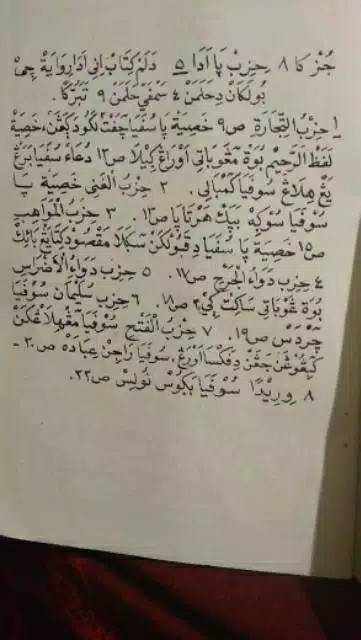 جُزْ كَا ٨ حِزِبْ ڽَا اَدَا ۵ دَلَمْ كِتَابْ اِنِي اَدَا رِوَايَةْ
بُولَكَانْ دِحَلَمَنْ ٤ سَمْفَيْ حَلَمَنْ ٩ تَبَرُّكًا.
١ حِزْبُ التِّجَارَةِ ص٩ خَصِيَةْ ڽَا سُفَيَا چَفَتْ لَكُودَ كَاڠَنْ، خَصِيَةْ
لَفَظْ الرَّحِيْمِ بُوَةْ مَڠُوْبَاتِي اَوْرَاڠْ كِيْلَا ص١٢ دُعَاءْ سُفَيَا بَرَڠْ
يَڠْ هِلَاڠْ سُوفَيَا كَمْبَالِي. ٢ حِزْبُ الْغَنِي خَصِيَةْ ڽَا
سُوْفَيَا سُوْكِهْ بَيِكْ هَرْتَاڽَا ص١١. ٣ حِزْبُ الْمَوَاهِبِ
ص١٥ خَصِيَةْ ڽَا سُفَيَا دِقَبُوْلْكَنْ سَكَلَا مَقْصُودْ كِتَا يَڠْ بَائِكْ
٤ حِزِبْ دَوَاءُ الْجَرْحِ ص١٧. ٥ حِزِبْ دَوَاءُ الْاَضْرَاسِ
بُوَةْ غُوْبَاتِي سَاكِتْ كِيْكِي ص١٨. ٦ حِزِبْ سُلَيْمَانْ سُوْفَيَا
چَرْدَسْ ص١٩. ٧ حِزْبُ الْفَتْحِ سُوْفَيَا مَڠْهِلَاڠْكَنْ
كَبِڠُوْڠَنْ جَڠَنْ دِفَكْسَا اَوْرَڠْ، سُوْفَيَا رَاجِنْ عِبَادَهْ ص٢٠-
٨ وِرِيْدًا سُوْفَيَا بَكُوْسْ نُوْلِسْ ص٢٢.